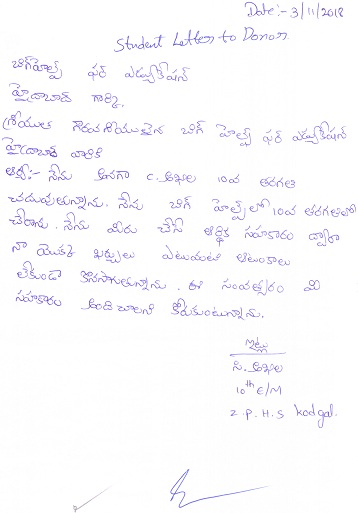 Date:- 3/11/2018
Student Letter to Donor
బిగ్‌హెల్ప్ ఫర్ ఎడ్యుకేషన్
హైదాబాద్ గార్కి,
శ్రీయుత గౌరవనీయులైన బిగ్ హెల్ప్ ఫర్ ఎడ్యుకేషన్
హైదాబాద్ వారికి
ఆర్య:- నేను అనగా C. అఖిల 10వ తరగతి
చదువుతున్నాను. నేను బిగ్ హెల్ప్ లో 10వ తరగతిలో
చేరాను. నేను మీరు చేసే ఆర్థిక సహకారం ద్వారా
నా యొక్క ఖర్చులు ఎటువంటి ఆటంకాలు
లేకుండా కొనసాగుతున్నాను. ఈ సంవత్సరం మి
సహకారం అందిచాలని కోరుకుంటున్నాను.
ఇట్లు
సి. అఖిల
10th E/M
Z.P.H.S Kodgal.